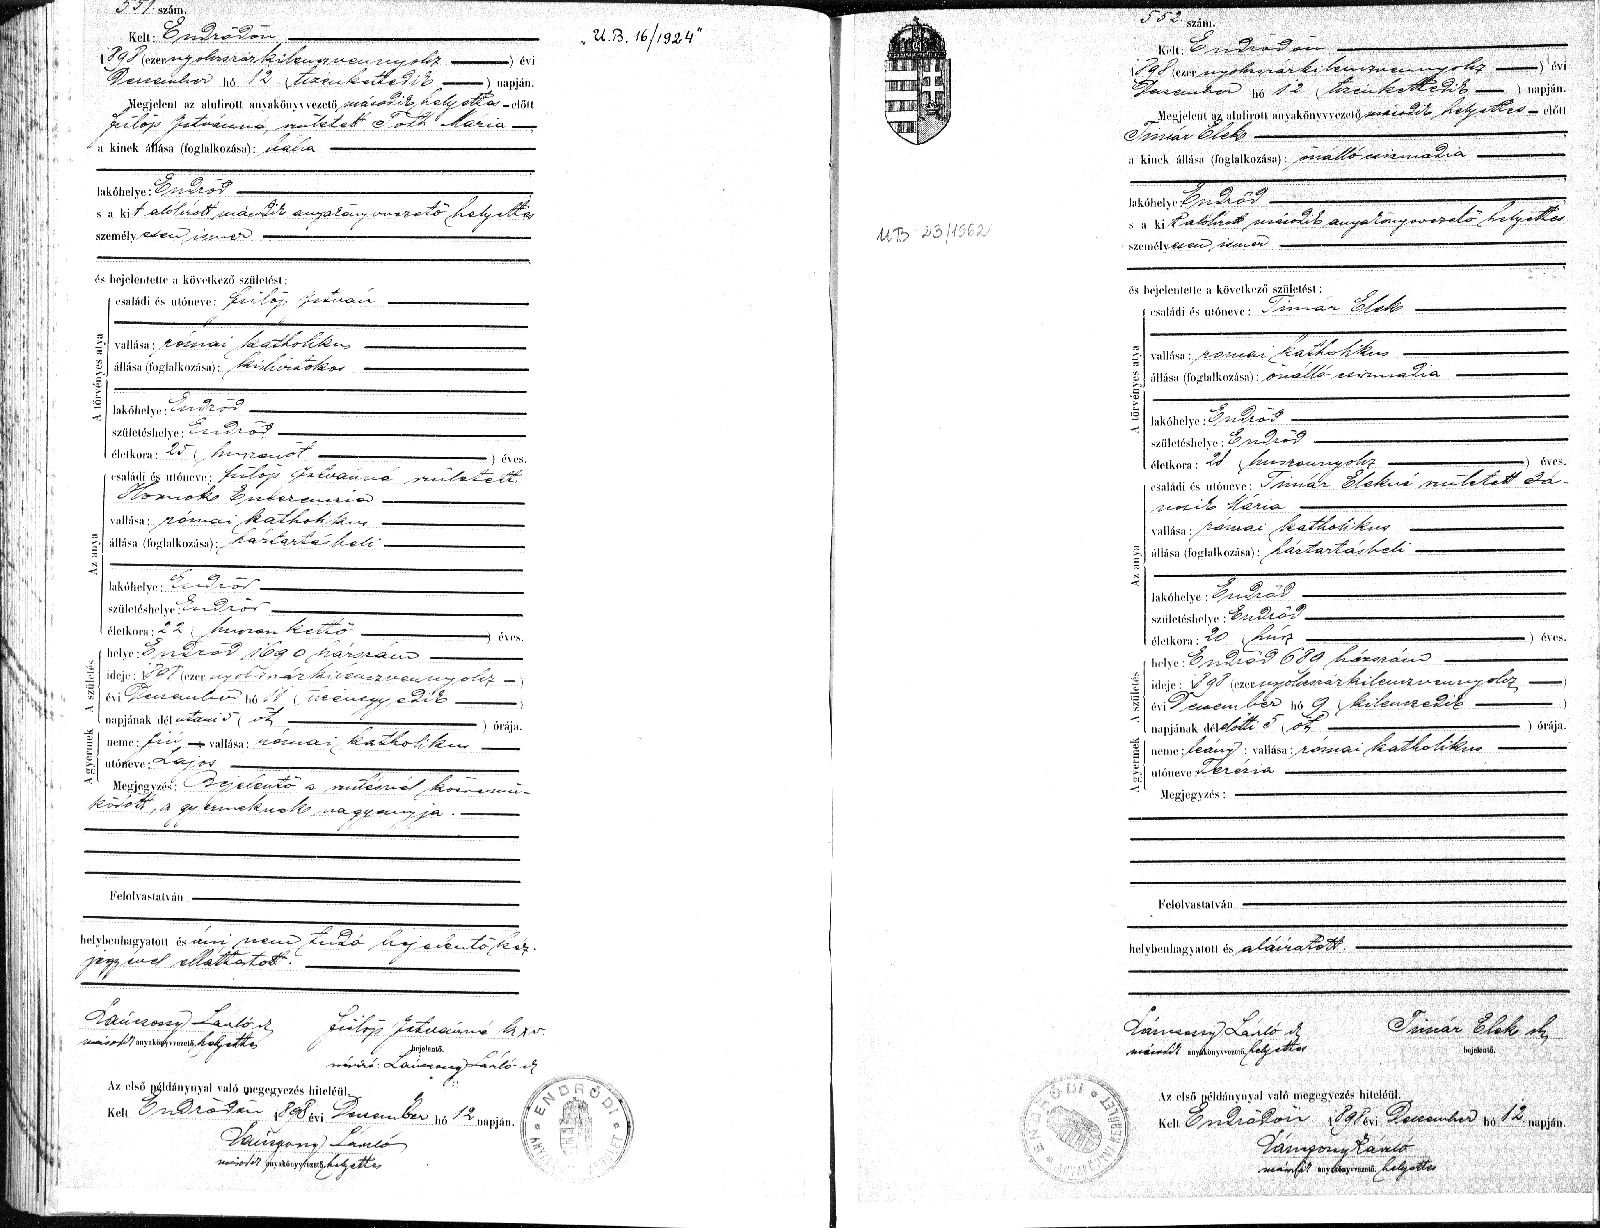 551. szám.
Kelt: Endrődön
1898 (ezer nyolczszázkilenczvennyolcz) évi
Deczember hó 12 (tizenkettedik) napján.
Megjelent az alulirott anyakönyvvezető második helyettes előtt
Fülöp Istvánné született Tóth Mária
a kinek állása (foglalkozása): bába
lakóhelye: Endrőd
s a kit alolirott második anyakönyvvezető helyettes
személyesen ismer
és bejelentette a következő születést:
A törvényes atya
családi és utóneve: Fülöp István
vallása: római katholikus
állása (foglalkozása): kisbirtokos
lakóhelye: Endrőd
születéshelye: Endrőd
életkora: 25 (huszonöt) éves.
Az anya
családi és utóneve: Fülöp Istvánné született
Homok
vallása: római katholikus
állása (foglalkozása): háztartásbeli
lakóhelye: Endrőd
születéshelye: Endrőd
életkora: 22 (huszonkettő) éves.
A születés
helye: Endrőd 1690 házszám
ideje: 1898 (ezer nyolczszázkilenczvennyolcz)
évi Deczember hó 11 (tizenegyedik)
napjának délutáni 5 (öt) órája.
A gyermek
neme: fiú, vallása: római katholikus
utóneve: Lajos
Megjegyzés: Bejelentő a szülésnél közremű-
ködött, a gyermeknek nagyanyja.
Felolvastatván
helybenhagyatott és irni nem tudó bejelentő kéz-
jegyével elláttatott.
László
második anyakönyvvezető helyettes
Fülöp Istvánné
bejelentő.
László
Az első példánynyal való megegyezés hiteléül.
Kelt Endrődön 1898 évi Deczember hó 12 napján.
László
második anyakönyvvezető helyettes
ENDRŐDI
„U.B. 16/1924"
UB 23/1962
552 szám.
Kelt: Endrődön
1898 (ezer nyolczszázkilenczvennyolcz) évi
Deczember hó 12 (tizenkettedik) napján.
Megjelent az alulirott anyakönyvvezető második helyettes előtt
Timár Elek
a kinek állása (foglalkozása): önálló csizmadia
lakóhelye: Endrőd
s a kit alolirott második anyakönyvvezető helyettes
személyesen ismer
és bejelentette a következő születést:
A törvényes atya
családi és utóneve: Timár Elek
vallása: római katholikus
állása (foglalkozása): önálló csizmadia
lakóhelye: Endrőd
születéshelye: Endrőd
életkora: 28 (huszonnyolcz) éves.
Az anya
családi és utóneve: Timár Elekné született Já-
nosik Mária
vallása: római katholikus
állása (foglalkozása): háztartásbeli
lakóhelye: Endrőd
születéshelye: Endrőd
életkora: 20 (húsz) éves.
A születés
helye: Endrőd 680 házszám
ideje: 1898 (ezer nyolczszázkilenczvennyolcz)
évi Deczember hó 9 (kilenczedik)
napjának délelőtti 5 (öt) órája.
A gyermek
neme: leány; vallása: római katholikus
utóneve Terézia
Megjegyzés:
Felolvastatván
helybenhagyatott és aláiratott.
László
második anyakönyvvezető helyettes
Timár Elek
bejelentő.
Az első példánynyal való megegyezés hiteléül.
Kelt Endrődön 1898 évi Deczember hó 12 napján.
László
második anyakönyvvezető helyettes
ENDRŐDI